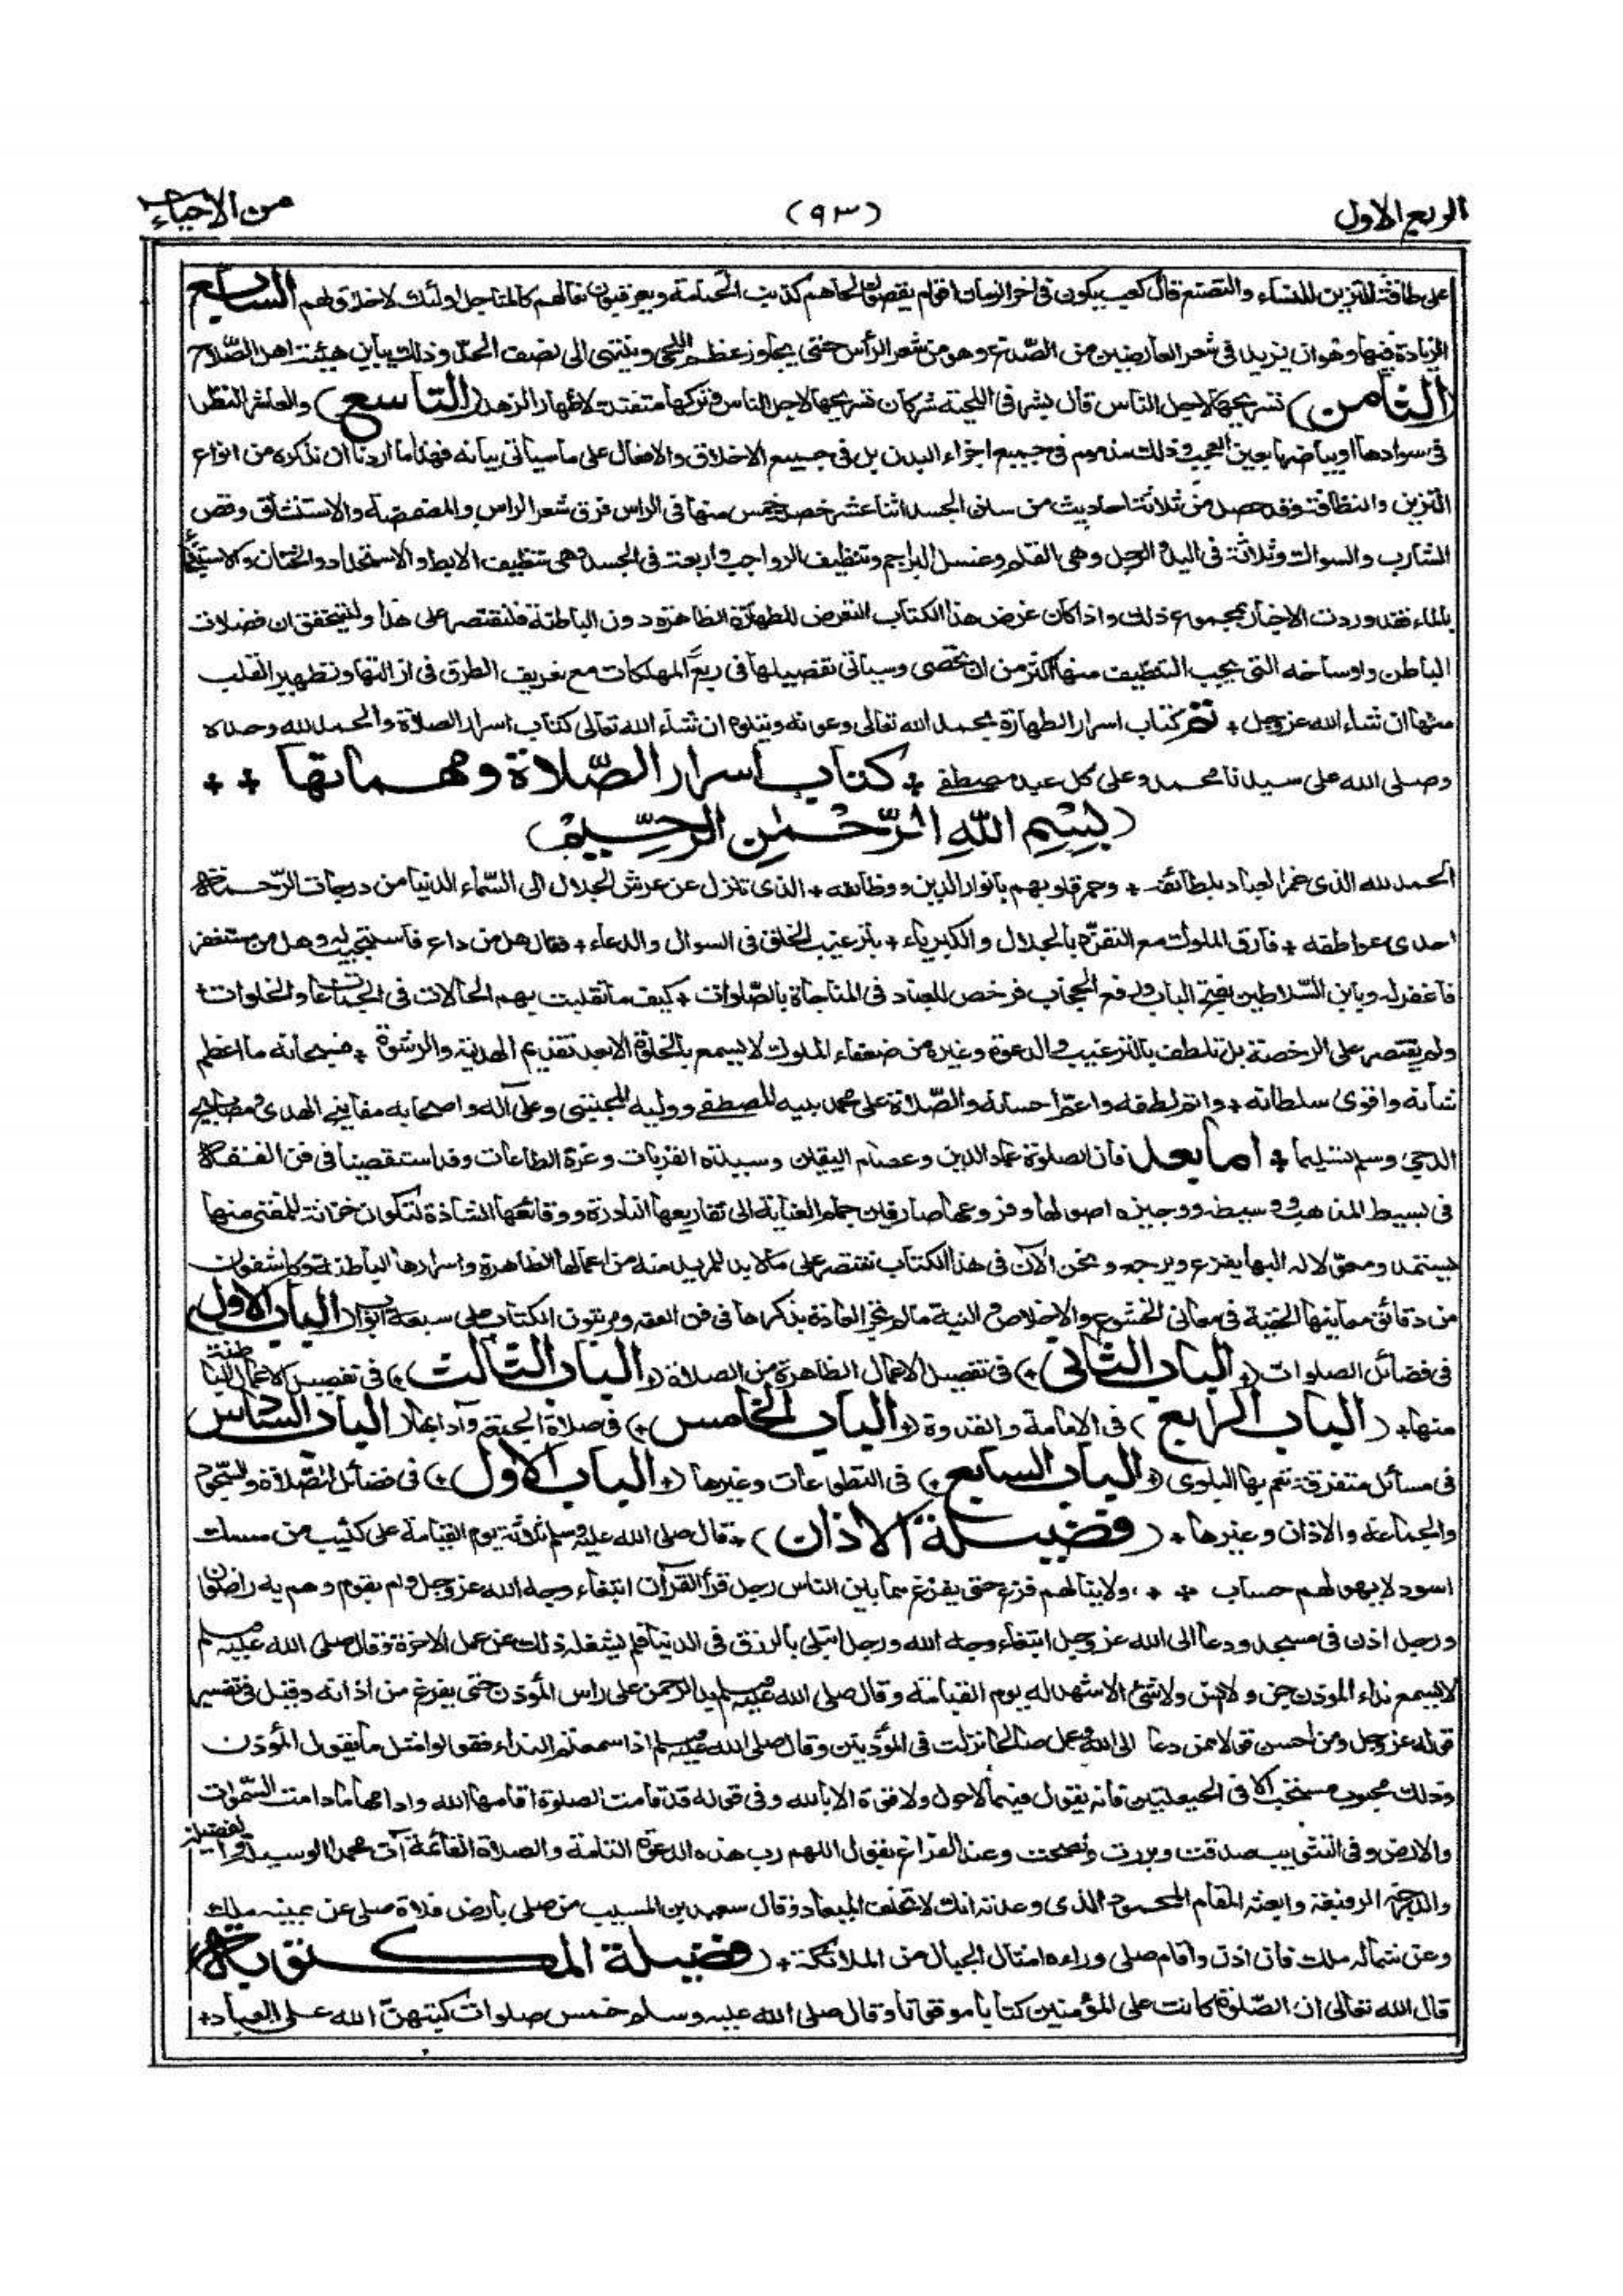 الربع الاول
(٩٣)
من الاحياء
على طاقة للتزين للنساء والتصنع قال كعب يكون في اخر الزمان اقوام يقصون لحاهم كذنب الحمامة ويعرقبون نعالهم كالمناجل اولئك لا خلاق لهم السابع
الزيادة فيها وهو ان يزيد في شعر العارضين من الصدغ وهو من شعر الرأس حتى يجاوز عظم اللحى وينتهى الى نصف الخد وذلك يباين هيئة اهل الصلاح
(الثامن) تسريحها لاجل الناس قال بشر فى اللحية شركان تسريحها لاجل الناس وتركها متفتلة لاظهار الزهد (التاسع) والعاشر النظر
فى سوادها او بياضها بعين العجب وذلك مذموم فى جميع اجزاء البدن بل فى جميع الاخلاق والافعال على ما سيأتى بيانه فهذا ما اردنا ان نذكره من انواع
التزين والنظافة وقد حصل من ثلاثة احاديث من سنن الجسد اثنا عشر خصلة خمس منها فى الراس فرق شعر الراس والمضمضة والاستنشاق وقص
الشارب والسواك وثلاثة فى اليد والرجل وهى القلم وغسل البراجم وتنظيف الرواجب واربعة فى الجسد وهى تنظيف الابط والاستحداد والختان والاستنجاء
بالماء فقد وردت الاخبار بمجموع ذلك واذا كان غرض هذا الكتاب التعرض للطهارة الظاهرة دون الباطنة فلنقتصر على هذا وليتحقق ان فضلات
الباطن واوساخه التى يجب التنظيف منها اكثر من ان تحصى وسيأتى تفصيلها فى ربع المهلكات مع تعريف الطرق فى ازالتها وتطهير القلب
منها ان شاء الله عز وجل + تم كتاب اسرار الطهارة بحمد الله تعالى وعونه ويتلوه ان شاء الله تعالى كتاب اسرار الصلاة والحمد لله وحده
وصلى الله على سيدنا محمد وعلى كل عبد مصطفى + كتاب اسرار الصلاة ومهماتها + +
(بسم الله الرحمن الرحيم)
الحمد لله الذى غمر العباد بلطائفه + وعمر قلوبهم بانوار الدين ووظائفه + الذى تنزل عن عرش الجلال الى السماء الدنيا من درجات الرحمة
احدى عواطفه + فارق الملوك مع التفرد بالجلال والكبرياء + بترغيب الخلق فى السوال والدعاء + فقال هل من داع فاستجيب له وهل من مستغفر
فاغفر له وباين السلاطين بفتح الباب ورفع الحجاب فرخص للعباد فى المناجاة بالصلوات + كيف ما تقلبت بهم الحالات فى الجماعات والخلوات +
ولم يقتصر على الرخصة بل تلطف بالترغيب والدعوة وغيره من ضعفاء الملوك لا يسمع بالخلوة الا بعد تقديم الهدية والرشوة + فسبحانه ما اعظم
شانه واقوى سلطانه + واتم لطفه واعم احسانه والصلاة على محمد نبيه المصطفى ووليه المجتبى وعلى آله واصحابه مفاتيح الهدى ومصابيح
الدجى وسلم تسليما + اما بعد فان الصلوة عماد الدين وعصام اليقين وسيدة القربات وغرة الطاعات وقد استقصينا فى فن الفقه
فى بسيط المذهب ووسيطه ووجيزه اصولها وفروعها صارفين جمام العناية الى تفاريعها النادرة ووقائعها الشاذة لتكون خزانة للمفتى منها
يستمد ومعولا له اليها يفزع ويرجع ونحن الآن فى هذا الكتاب نقتصر على ما لا بد للمريد منه من اعمالها الظاهرة واسرارها الباطنة وكاشفون
من دقائق معانيها الخفية فى معانى الخشوع والاخلاص والنية ما لم تجر العادة بذكرها فى فن الفقه ومرتبون الكتاب على سبعة ابواب (الباب الاول
فى فضائل الصلوات (+ الباب الثانى +) فى تفصيل الاعمال الظاهرة من الصلاة (+ الباب الثالث +) فى تفصيل الاعمال الباطنة
منها + (الباب الرابع) فى الامامة والقدوة (+ الباب الخامس +) فى صلاة الجمعة وآدابها (الباب السادس
فى مسائل متفرقة تعم بها البلوى (+ الباب السابع +) فى التطوعات وغيرها (+ الباب الاول +) فى فضائل الصلاة والسجود
والجماعة والاذان وغيرها + (فضيلة الاذان) + قال صلى الله عليه وسلم ثلاثة يوم القيامة على كثيب من مسك
اسود لا يهولهم حساب + + ولا ينالهم فزع حتى يفرغ مما بين الناس رجل قرأ القرآن ابتغاء وجه الله عز وجل وام بقوم وهم به راضون
ورجل اذن فى مسجد ودعا الى الله عز وجل ابتغاء وجه الله ورجل ابتلى بالرزق فى الدنيا فلم يشغله ذلك عن عمل الآخرة وقال صلى الله عليه وسلم
لا يسمع نداء الموذن جن ولا انس ولا شئ الا شهد له يوم القيامة وقال صلى الله عليه وسلم يد الرحمن على راس المؤذن حتى يفرغ من اذانه وقيل فى تفسير
قوله عز وجل ومن احسن قولا ممن دعا الى الله وعمل صالحا نزلت فى المؤذنين وقال صلى الله عليه وسلم اذا سمعتم النداء فقولوا مثل ما يقول المؤذن
وذلك محبوب مستحب الا فى الحيعلتين فانه يقول فيهما لا حول ولا قوة الا بالله وفى قوله قد قامت الصلوة اقامها الله وادامها ما دامت السموات
والارض وفى التثويب صدقت وبررت ونصحت وعند الفراغ يقول اللهم رب هذه الدعوة التامة والصلاة القائمة آت محمدا الوسيلة والفضيلة
والدرجة الرفيعة وابعثه المقام المحمود الذى وعدته انك لا تخلف الميعاد وقال سعيد بن المسيب من صلى بارض فلاة صلى عن يمينه ملك
وعن شماله ملك فان اذن واقام صلى وراءه امثال الجبال من الملائكة + (فضيلة المكتوبة)
قال الله تعالى ان الصلوة كانت على المؤمنين كتابا موقوتا وقال صلى الله عليه وسلم خمس صلوات كتبهن الله على العباد +